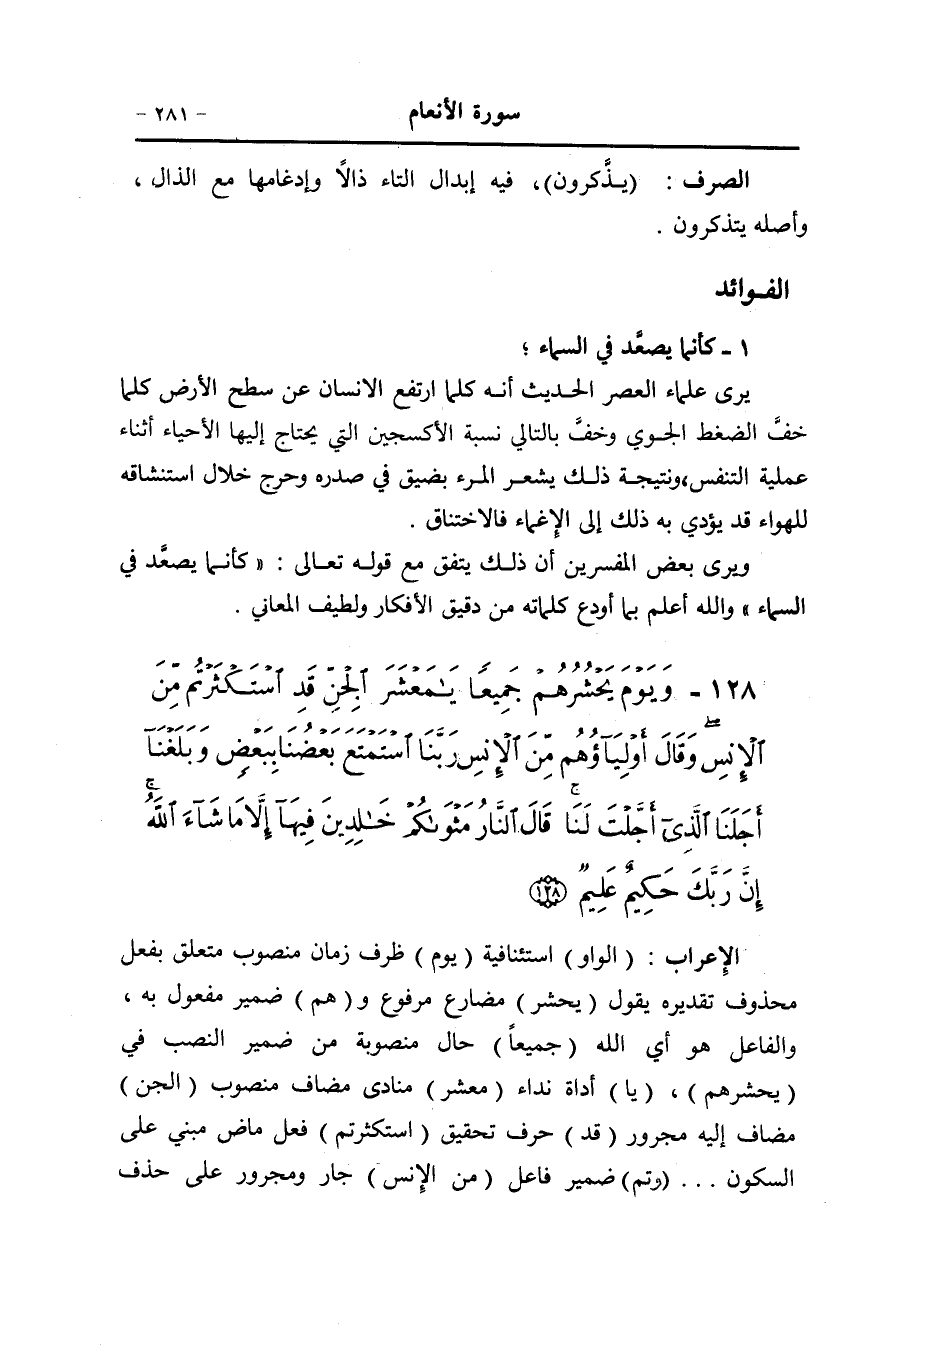 سورة الأنعام - ٢٨١ -
الصرف : (يـذَّكرون)، فيه إبدال التاء ذالًا وإدغامها مع الذال ،
وأصله يتذكرون .
الفـوائد
١ - كأنما يصعَّد في السماء ؛
يرى علماء العصر الحـديث أنـه كلما ارتفع الانسان عن سطح الأرض كلما
خفَّ الضغط الجـوي وخفَّ بالتالي نسبة الأكسجين التي يحتاج إليها الأحياء أثناء
عملية التنفس،ونتيجـة ذلـك يشعـر المـرء بضيق في صدره وحرج خلال استنشاقه
للهواء قد يؤدي به ذلك إلى الإغماء فالاختناق .
ويرى بعض المفسرين أن ذلـك يتفق مع قولـه تعـالى : « كأنـما يصعَّد في
السماء » والله أعلم بما أودع كلماته من دقيق الأفكار ولطيف المعاني .
١٢٨ - وَيَوْمَ يَحْشُرُهُمْ جَمِيعًا يَٰمَعْشَرَ ٱلْجِنِّ قَدِ ٱسْتَكْثَرْتُم مِّنَ
ٱلْإِنسِ ۖ وَقَالَ أَوْلِيَآؤُهُم مِّنَ ٱلْإِنسِ رَبَّنَا ٱسْتَمْتَعَ بَعْضُنَا بِبَعْضٍ وَبَلَغْنَآ
أَجَلَنَا ٱلَّذِىٓ أَجَّلْتَ لَنَا ۚ قَالَ ٱلنَّارُ مَثْوَىٰكُمْ خَٰلِدِينَ فِيهَآ إِلَّا مَا شَآءَ ٱللَّهُ ۗ
إِنَّ رَبَّكَ حَكِيمٌ عَلِيمٌ ١٢٨
الإعراب : ( الواو ) استئنافية ( يوم ) ظرف زمان منصوب متعلق بفعل
محذوف تقديره يقول ( يحشر ) مضارع مرفوع و( هم ) ضمير مفعول به ،
والفاعل هو أي الله ( جميعاً ) حال منصوبة من ضمير النصب في
( يحشرهم ) ، ( يا ) أداة نداء ( معشر ) منادى مضاف منصوب ( الجن )
مضاف إليه مجرور ( قد ) حرف تحقيق ( استكثرتم ) فعل ماض مبني على
السكون ... (وتم) ضمير فاعل ( من الإنس ) جار ومجرور على حذف